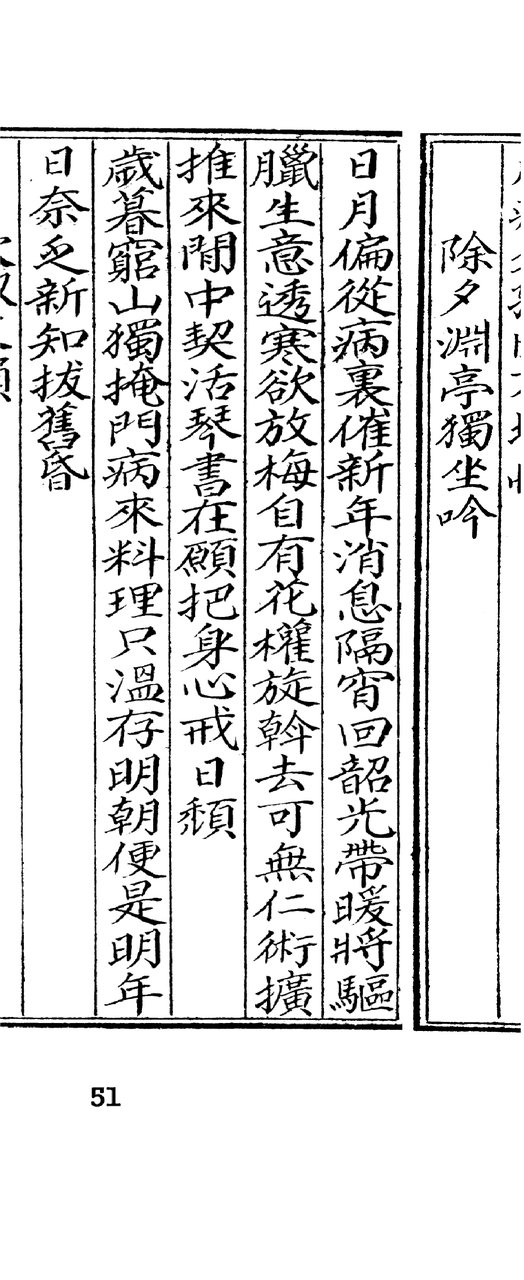 除夕淵亭獨坐吟
日月偏從病裏催新年消息隔宵回韶光帶暖將驅
臘生意透寒欲放梅自有花權旋斡去可無仁術擴
推來閒中契活琴書在願把身心戒日頹
歲暮窮山獨掩門病來料理只溫存明朝便是明年
日奈乏新知拔舊昏
51